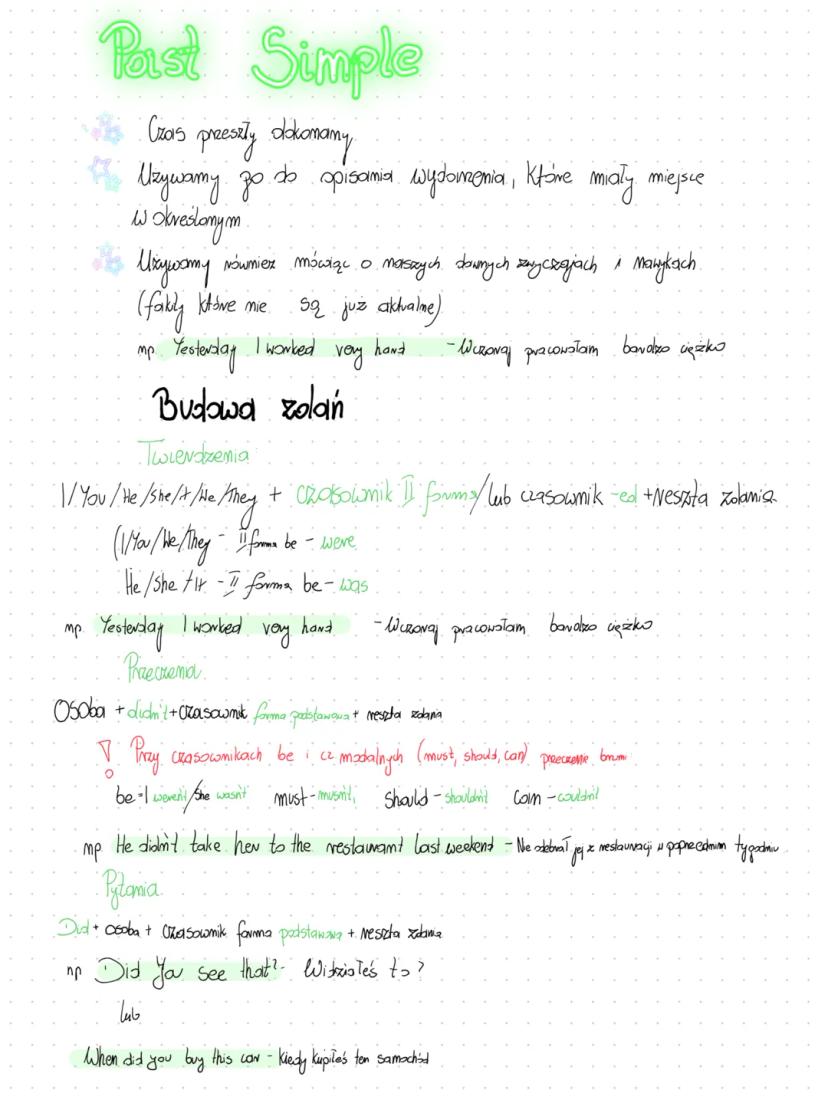 Past Simple
Czas przeszły dokonany
Używamy go do opisania wydarzenia, które miały miejsce
w określonym
Używamy również mówiąc o naszych dawnych zwyczajach i nawykach
(fakty które nie są już aktualne)
np. Yesterday I worked very hard - Wczoraj pracowałam bardzo ciężko
Budowa zdań
Twierdzenia
I/You/He/She/It/We/They + czasownik II forma/lub czasownik -ed + Reszta zdania
(I/You/We/They - II forma be - were
He/She/It - II forma be - was
np. Yesterday I worked very hard - Wczoraj pracowałam bardzo ciężko
Przeczenia
Osoba + didn't + czasownik forma podstawowa + reszta zdania
! Przy czasownikach be i cz modalnych (must, should, can) przeczenie brzmi
be = I weren't/She wasn't must - musn't, should - shouldn't can - couldn't
np He didn't take her to the restaurant last weekend - Nie odebrał jej z restauracji w poprzednim tygodniu
Pytania
Did + osoba + czasownik forma podstawowa + reszta zdania
np Did You see that? - Widziałeś to?
lub
When did you buy this car - kiedy kupiłeś ten samochód